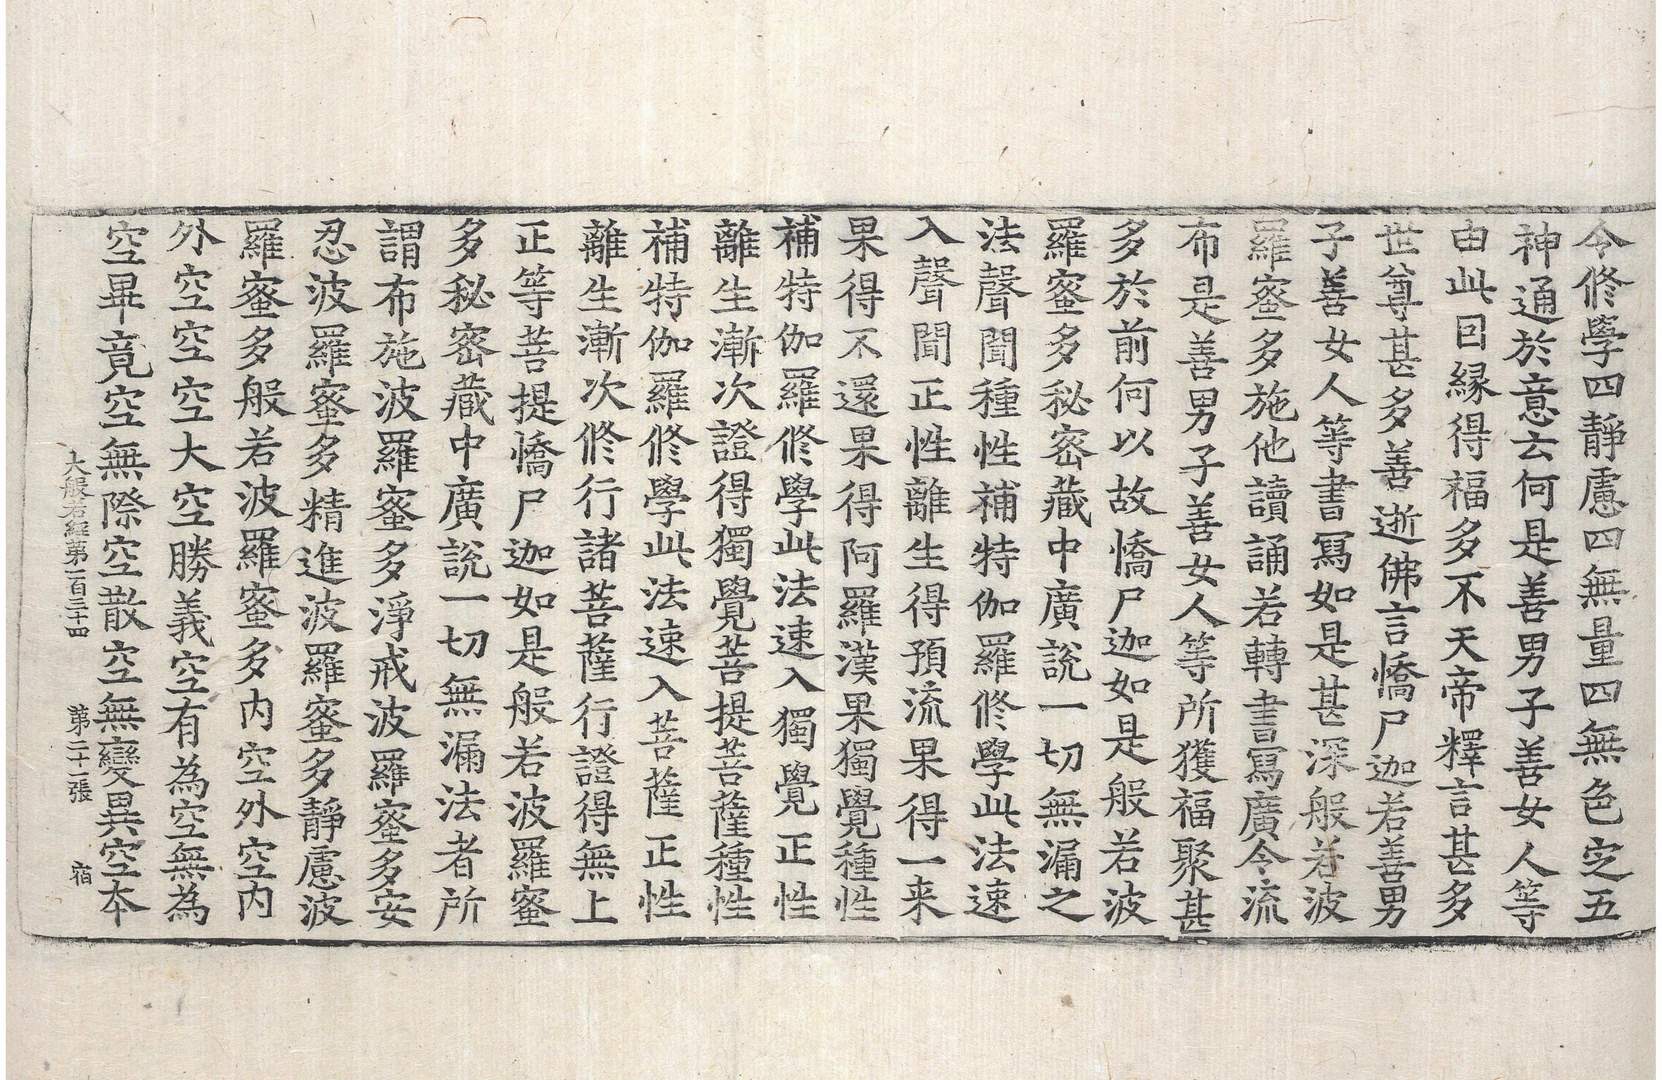 令修學四靜慮四無量四無色定五
神通於意云何是善男子善女人等
由此因緣得福多不天帝釋言甚多
世尊甚多善逝佛言憍尸迦若善男
子善女人等書寫如是甚深般若波
羅蜜多施他讀誦若轉書寫廣令流
布是善男子善女人等所獲福聚甚
多於前何以故憍尸迦如是般若波
羅蜜多秘密藏中廣說一切無漏之
法聲聞種性補特伽羅修學此法速
入聲聞正性離生得預流果得一来
果得不還果得阿羅漢果獨覺種性
補特伽羅修學此法速入獨覺正性
離生漸次證得獨覺菩提菩薩種性
補特伽羅修學此法速入菩薩正性
離生漸次修行諸菩薩行證得無上
正等菩提憍尸迦如是般若波羅蜜
多秘密藏中廣說一切無漏法者所
謂布施波羅蜜多淨戒波羅蜜多安
忍波羅蜜多精進波羅蜜多靜慮波
羅蜜多般若波羅蜜多內空外空內
外空空空大空勝義空有為空無為
空畢竟空無際空散空無變異空本
大般若經第一百三十四 第二十一張 宿